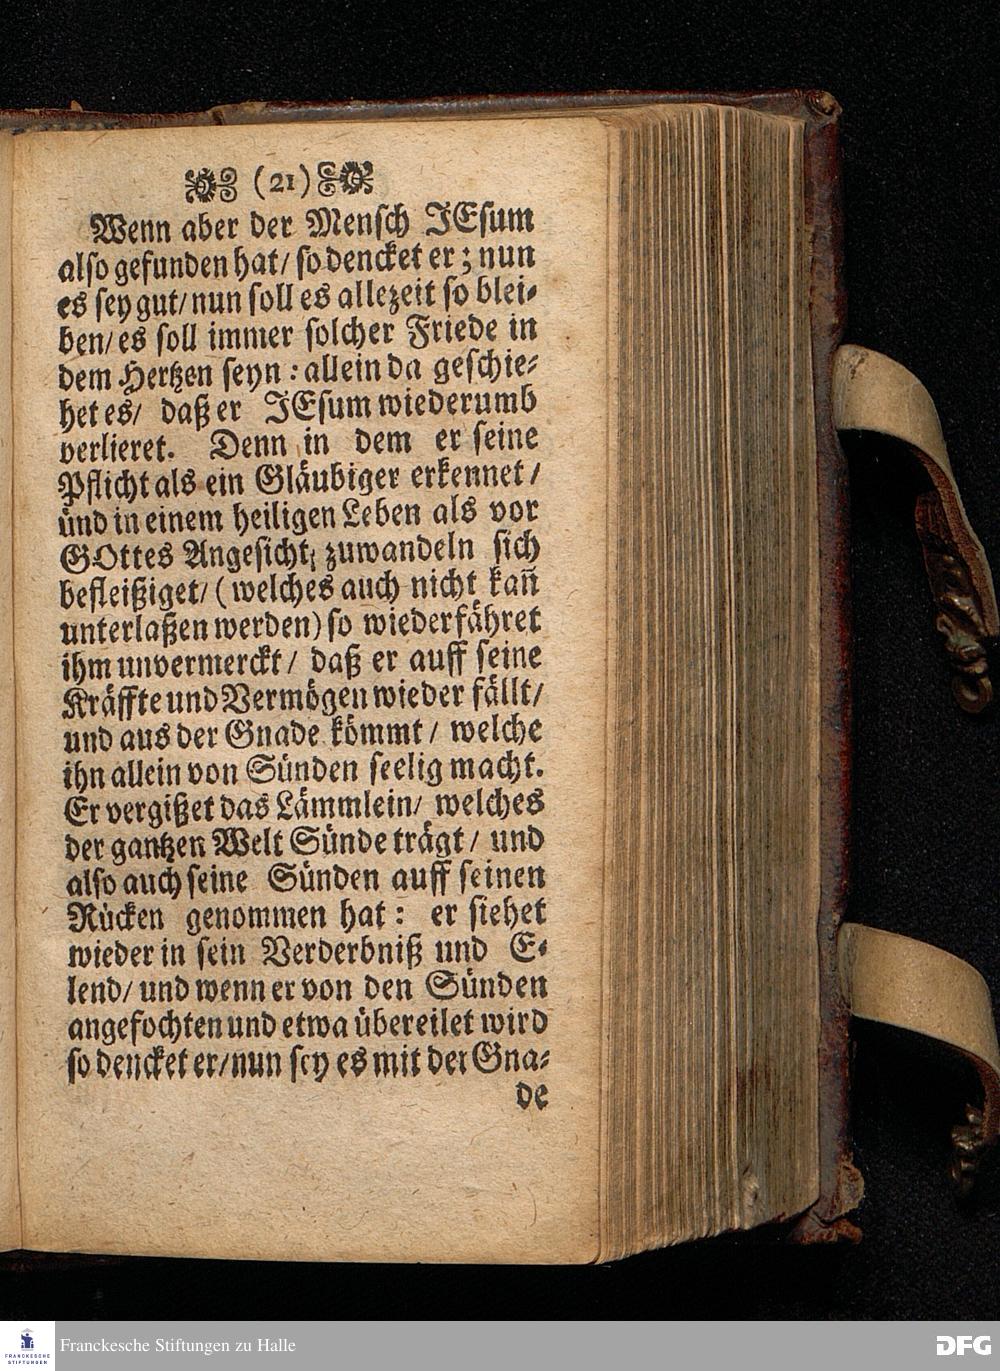 (21)
Wenn aber der Mensch JEsum
also gefunden hat/ so dencket er; nun
es sey gut/ nun soll es allezeit so blei-
ben/ es soll immer solcher Friede in
dem Hertzen seyn: allein da geschie-
het es/ daß er JEsum wiederumb
verlieret. Denn in dem er seine
Pflicht als ein Gläubiger erkennet/
und in einem heiligen Leben als vor
GOttes Angesicht zuwandeln sich
befleißiget/ (welches auch nicht kañ
unterlaßen werden) so wiederfähret
ihm unvermerckt/ daß er auff seine
Kräffte und Vermögen wieder fällt/
und aus der Gnade kömmt/ welche
ihn allein von Sünden seelig macht.
Er vergißet das Lämmlein/ welches
der gantzen Welt Sünde trägt/ und
also auch seine Sünden auff seinen
Rücken genommen hat: er siehet
wieder in sein Verderbniß und E-
lend/ und wenn er von den Sünden
angefochten und etwa übereilet wird
so dencket er/ nun sey es mit der Gna-
de
FRANCKESCHE
STIFTUNGEN
Franckesche Stiftungen zu Halle
DFG